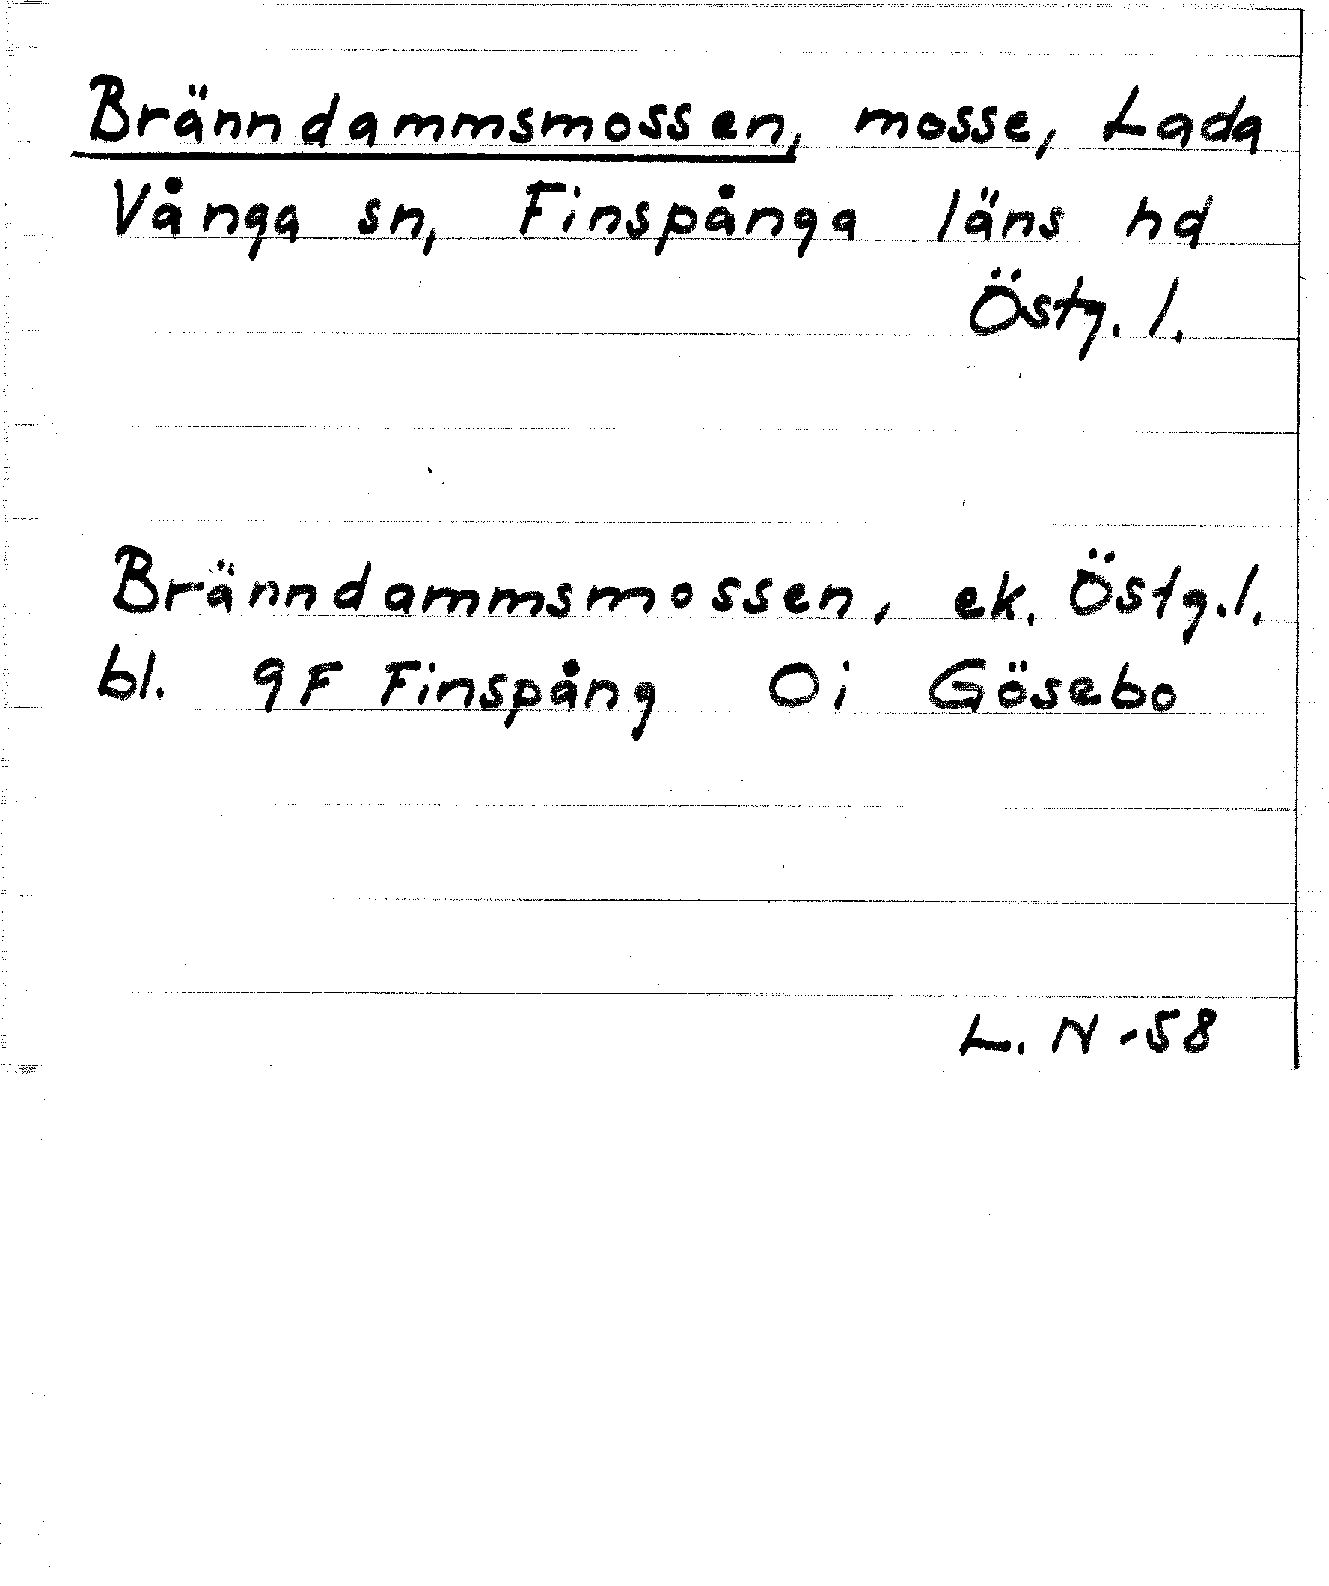 Bränndammsmossen, mosse, Lada
Vånga sn, Finspånga läns hd
Östg. l.
Bränndammsmossen, ek. Östg.l.
bl. 9F Finspång 0i Gösebo
L. N -58